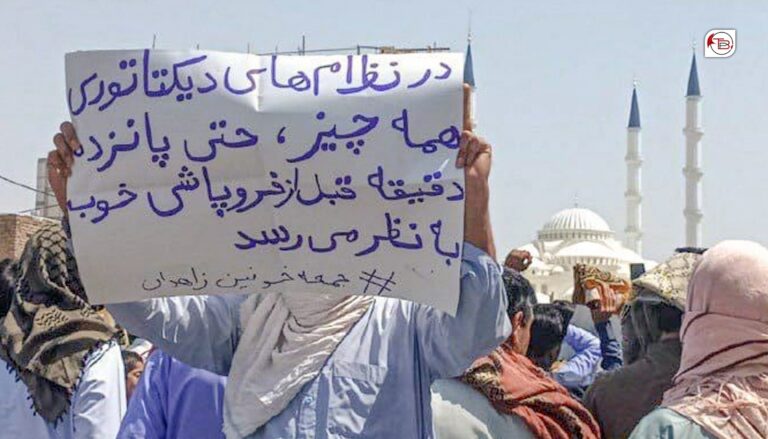 در نظام‌های دیکتاتوری
همه چیز، حتی پانزده
دقیقه قبل از فروپاشی خوب
به نظر می‌رسد
# جمعه خونین زاهدان
TB